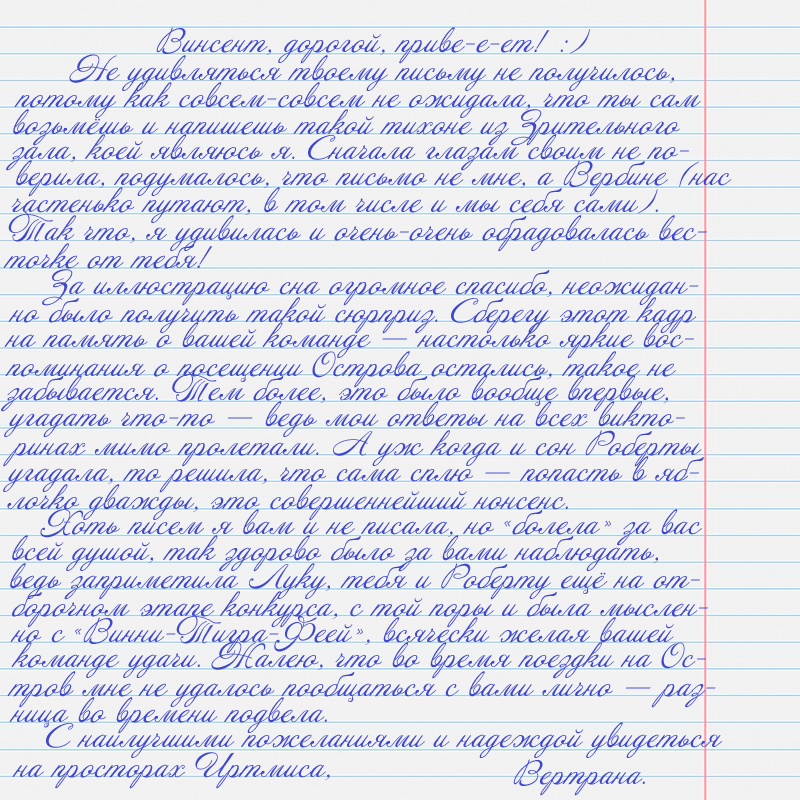 Винсент, дорогой, приве-е-ет! :)
Не удивляться твоему письму не получилось,
потому как совсем-совсем не ожидала, что ты сам
возьмёшь и напишешь такой тихоне из Зрительного
зала, коей являюсь я. Сначала глазам своим не по-
верила, подумалось, что письмо не мне, а Вербине (нас
частенько путают, в том числе и мы себя сами).
Так что, я удивилась и очень-очень обрадовалась вес-
точке от тебя!
За иллюстрацию сна огромное спасибо, неожидан-
но было получить такой сюрприз. Сберегу этот кадр
на память о вашей команде — настолько яркие вос-
поминания о посещенци Острова остались, такое не
забывается. Тем более, это было вообще впервые,
угадать что-то — ведь мои ответы на всех викто-
ринах мимо пролетали. А уж когда и сон Роберты
угадала, то решила, что сама сплю — попасть в яб-
лочко дважды, это совершеннейший нонсенс.
Хоть писем я вам и не писала, но «болела» за вас
всей душой, так здорово было за вами наблюдать,
ведь заприметила Луку, тебя и Роберту ещё на от-
борочном этапе конкурса, с той поры и была мыслен-
но с «Винни-Тигра-Феей», всячески желая вашей
команде удачи. Жалею, что во время поездки на Ос-
тров мне не удалось пообщаться с вами лично — раз-
ница во времени подвела.
С наилучшими пожеланиями и надеждой увидеться
на просторах Уртмиса,
Вертрана.